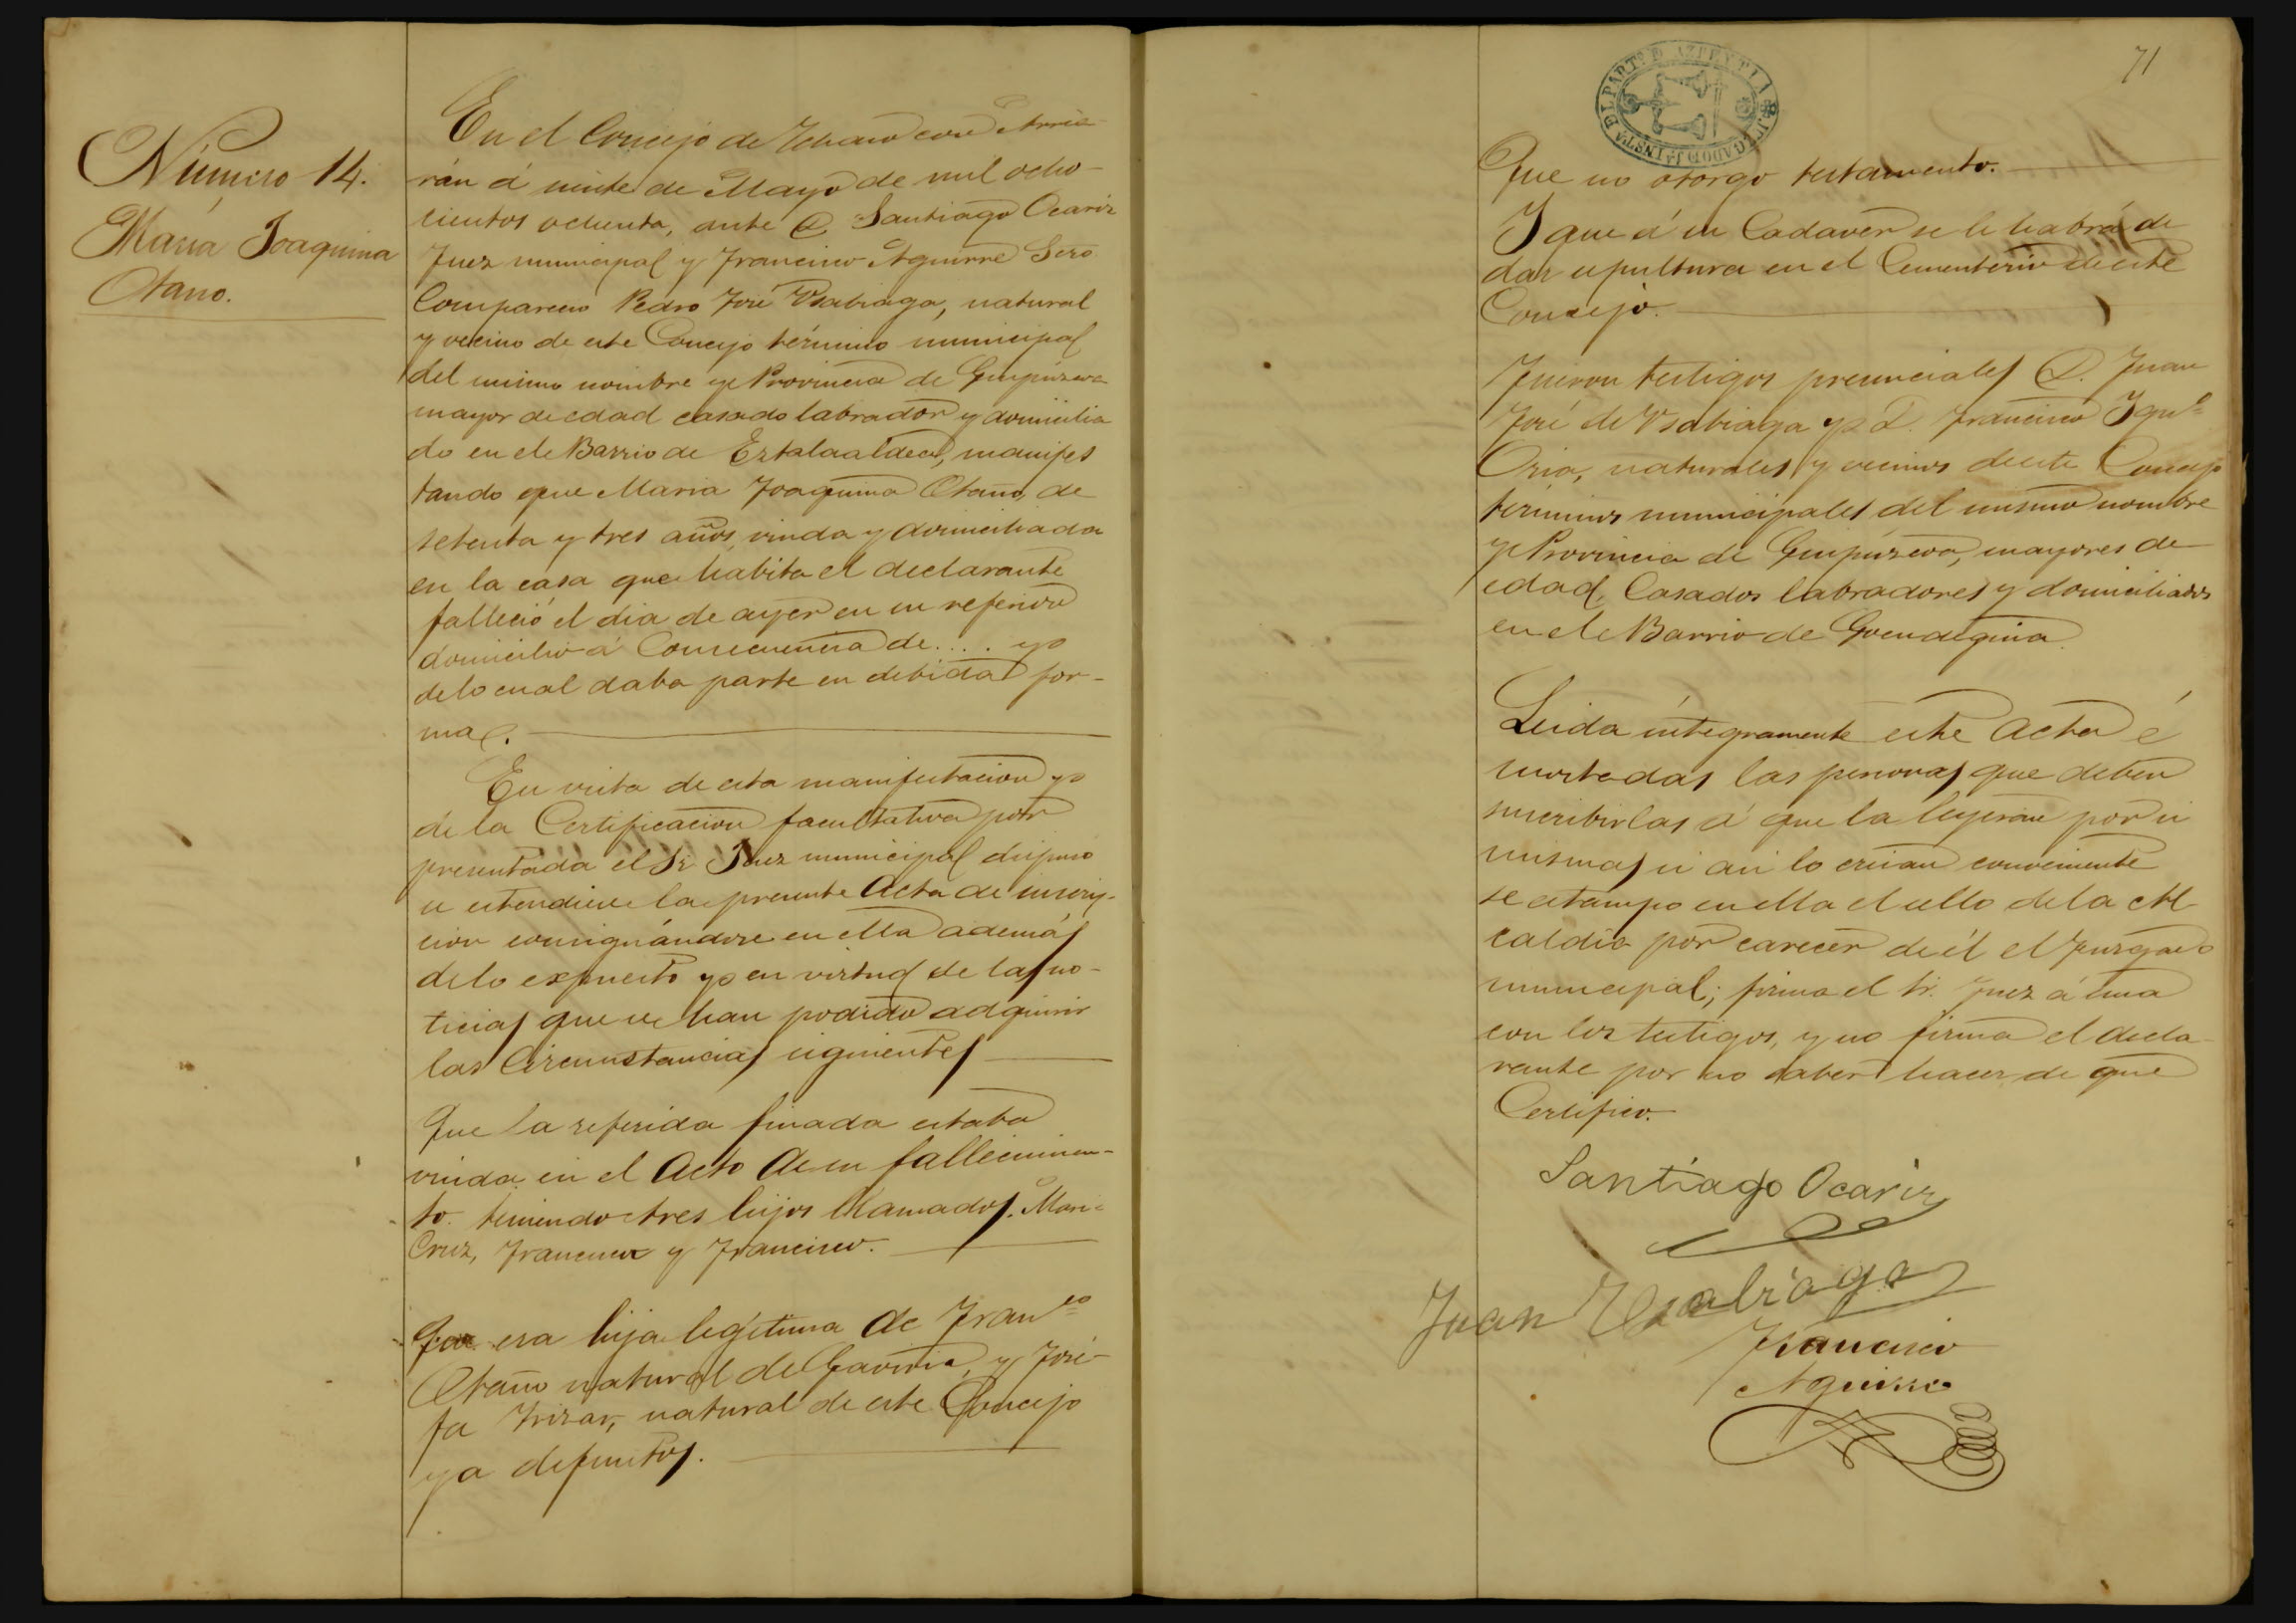 Número 14.
María Joaquina
Otano.
En el Concejo de Ichaso con Arria
rán á veinte de Mayo de mil ocho-
cientos ochenta, ante D. Santiago Ocariz
Juez municipal y Francisco Aguirre Scro.
Comparecio Pedro José Usabiaga, natural
y vecino de este Concejo término municipal
del mismo nombre y Provincia de Guipúzcoa
mayor de edad casado labrador y domicilia
do en el Barrio de manifes
tando que Maria Joaquina Otaño, de
setenta y tres años, viuda y domiciliada
en la casa que habita el declarante
falleció el dia de ayer en su referido
domicilio á Consecuencia de.... y
de lo cual daba parte en debida for-
ma.
En vista de esta manifestacion y
de la Certificacion facultativa
presentada el Sr. Juez municipal dispuso
se estendiese la presente Acta de inscrip-
cion consignándose en ella además
de lo expuesto y en virtud de las no-
ticias que se han podido adquirir
las Circunstancias siguientes
Que la referida finada estaba
viuda en el Acto de su fallecimien-
to. teniendo tres hijos llamados. Mari-
Cruz, Francisca y Francisco.
Que era hija legitima de Franco
Otaño natural de Gaviria, y José-
fa Irizar, natural de este Concejo
ya difuntos.
71
JUZGADO DE 1ª INSTª DEL PARTº DE AZPEYTIA
Que no otorgo testamento.
Y que á su Cadaver se le habrá de
dar sepultura en el Cementerio de este
Concejo.
Fueron testigos presenciales D. Juan
José de Usabiaga y D. Francisco Ignº
Oria, naturales y vecinos de este Concejo
términos municipales del mismo nombre
y Provincia de Guipúzcoa, mayores de
edad, Casados labradores y domiciliados
en el Barrio de
Leida íntegramente este Acta é
invitadas las personas que deben
suscribirlas á que la leyeran por si
mismas si asi lo creian conveniente
se estampo en ella el sello de la Al
caldia por carecer de él el Juzgado
municipal; firma el Sr. Juez á una
con los testigos, y no firma el decla-
rante por no saber hacer de que
Certifico.
Santiago Ocariz
Juan Usabiaga
Francisco
Aguirre